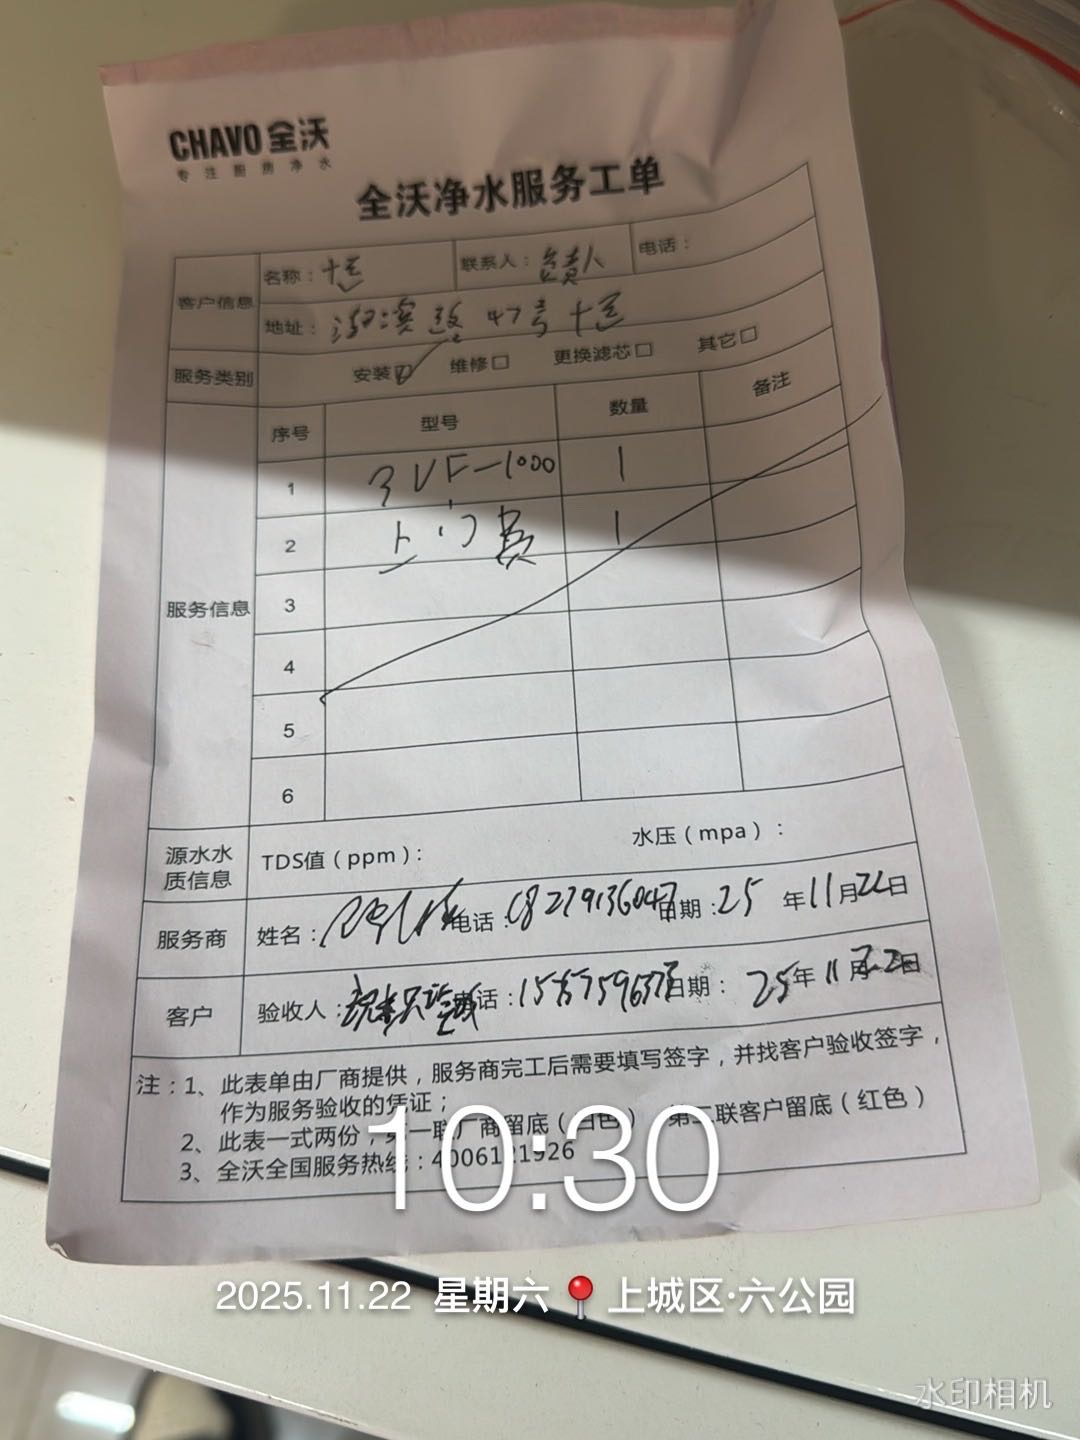 CHAVO 全沃
专注厨房净水
全沃净水服务工单
客户信息 名称： 联系人：负责人 电话：
地址：湖滨路 47号
服务类别 安装☑ 维修□ 更换滤芯□ 其它□
服务信息 序号 型号 数量 备注
1 3VF-1000 1
2 上门费 1
3
4
5
6
源水水质信息 TDS值（ppm）： 水压（mpa）：
服务商 姓名： 电话： 日期：25 年 11 月 22 日
客户 验收人： 电话： 日期： 25 年 11 月 22 日
注：1、此表单由厂商提供，服务商完工后需要填写签字，并找客户验收签字，
作为服务验收的凭证；
2、此表一式两份，第一联厂商留底（白色） 第二联客户留底（红色）
3、全沃全国服务热线：4006121926
10:30
2025.11.22 星期六 上城区·六公园
水印相机